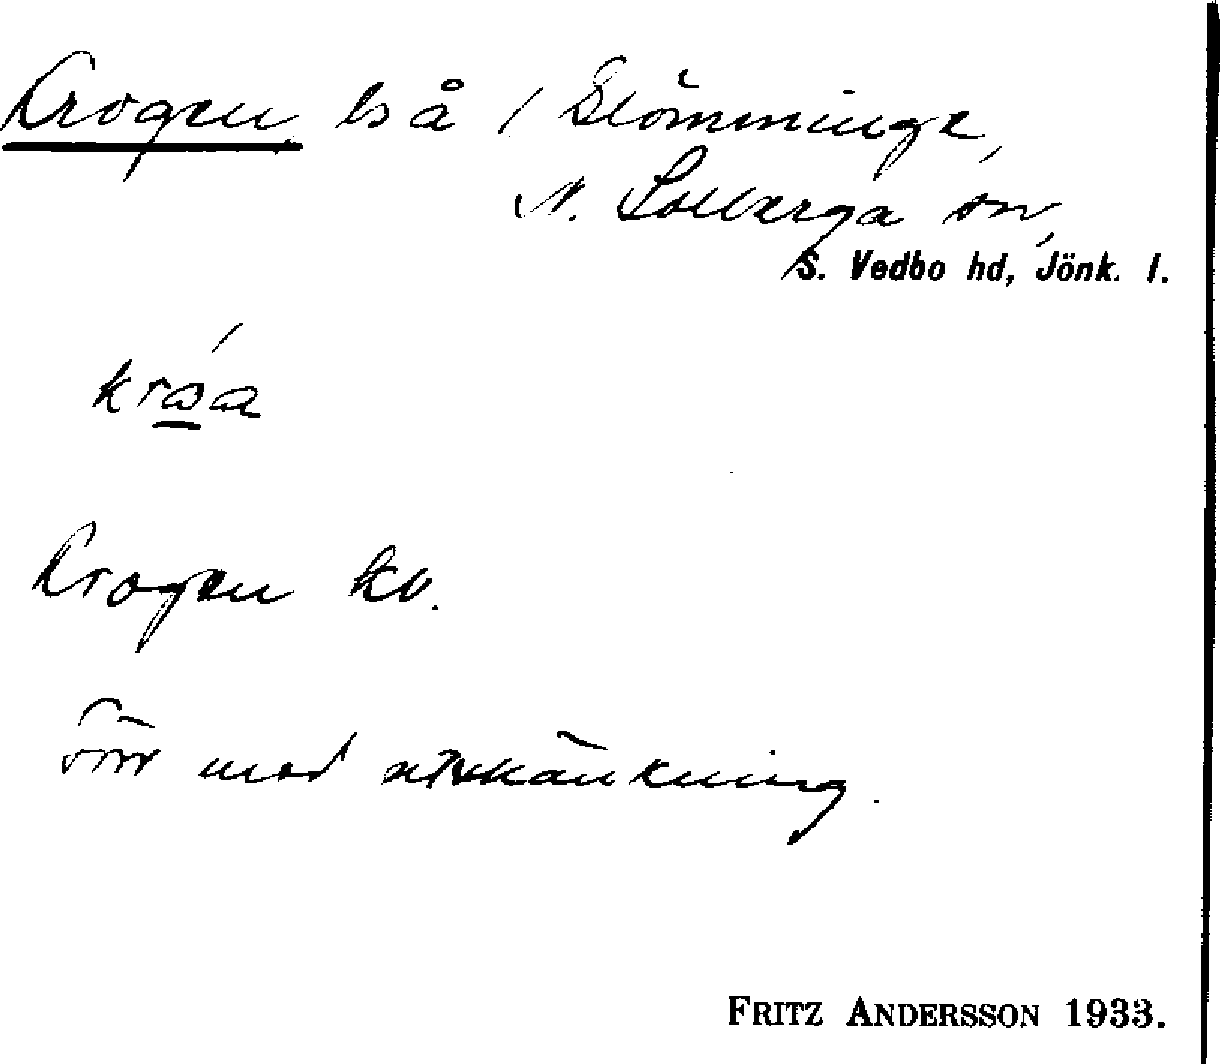 Krogen bså / Slömminge,
N. Solberga sn,
S. Vedbo hd, Jönk. l.
Krogen kv.
förr med utskänkning.
FRITZ ANDERSSON 1933.